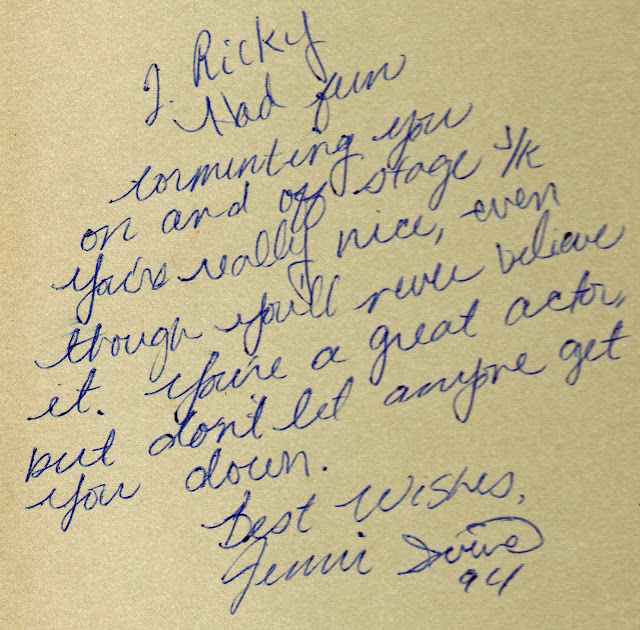 J. Ricky
Had fun
torminting you
on and off stage J/K
You're really nice, even
though you'll never believe
it. You're a great actor,
but don't let anyone get
you down.
Best Wishes,
Jenni
94